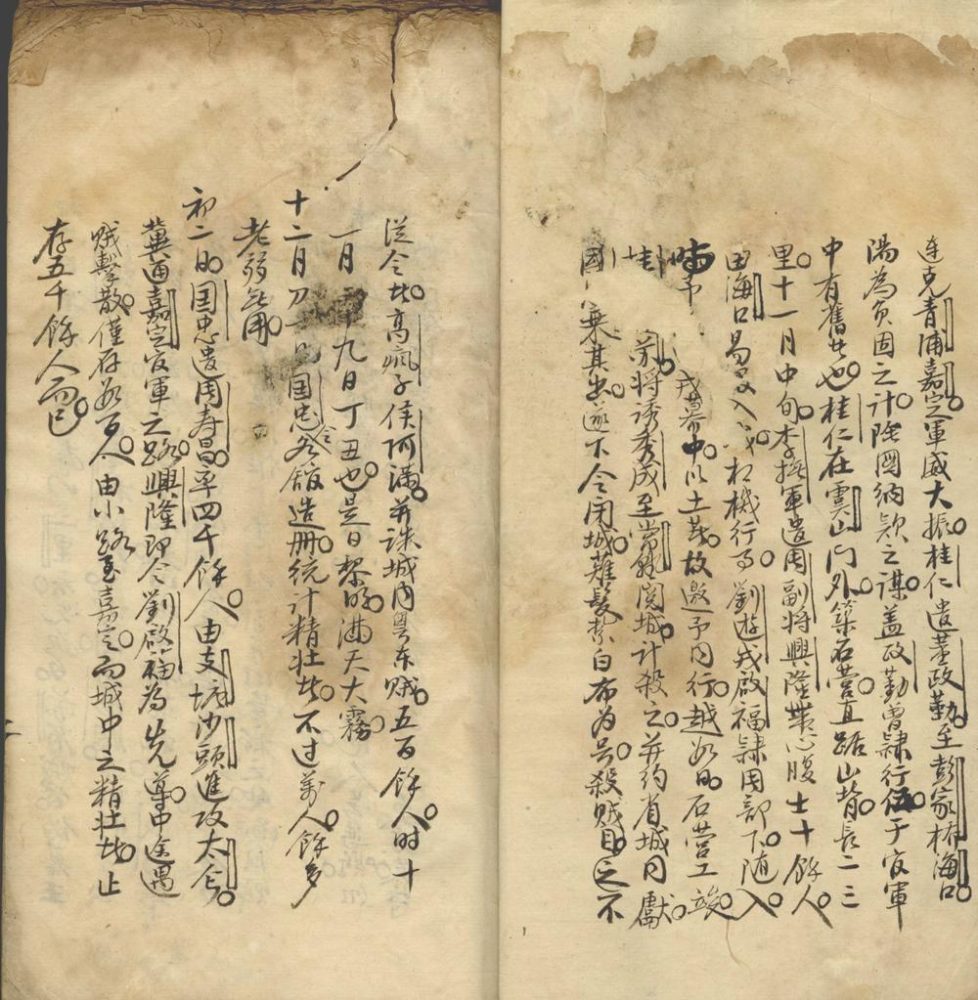 連克青浦嘉定軍威大振桂仁遣董政勤至彭家橋海口
陽為負固之計陰圖納款之謀蓋政勤曾隸行伍于官軍
中有舊者也桂仁在虞山門外築石營直踞山背長二三
里十一月中旬李撫軍遣周副將興隆帶心腹士十餘人
田海口易又入相機行事劉遊戎啟福隸周部下隨入
予戎幕中以土著故邀予同行越數日石營工竣
前將誘秀成至常熟閱城計殺之并約省城同獻
國乘其出遂下令閉城薙髮紮白布為号殺賊目之不
從令者高瘋子侯阿滿并誅城內粵東賊五百餘人时十
一月十九日丁丑也是日黎明滿天大霧
十二月初一國忠令各館造冊統計精壯者不过萬人餘多
老弱無用
初二日国忠遣周寿昌率四千餘人由支塘沙頭進攻太仓
冀通嘉定官軍之路興隆即令劉啟福為先導中途遇
賊擊散僅存数百人由小路至嘉定而城中之精壯者止
存五千餘人而已